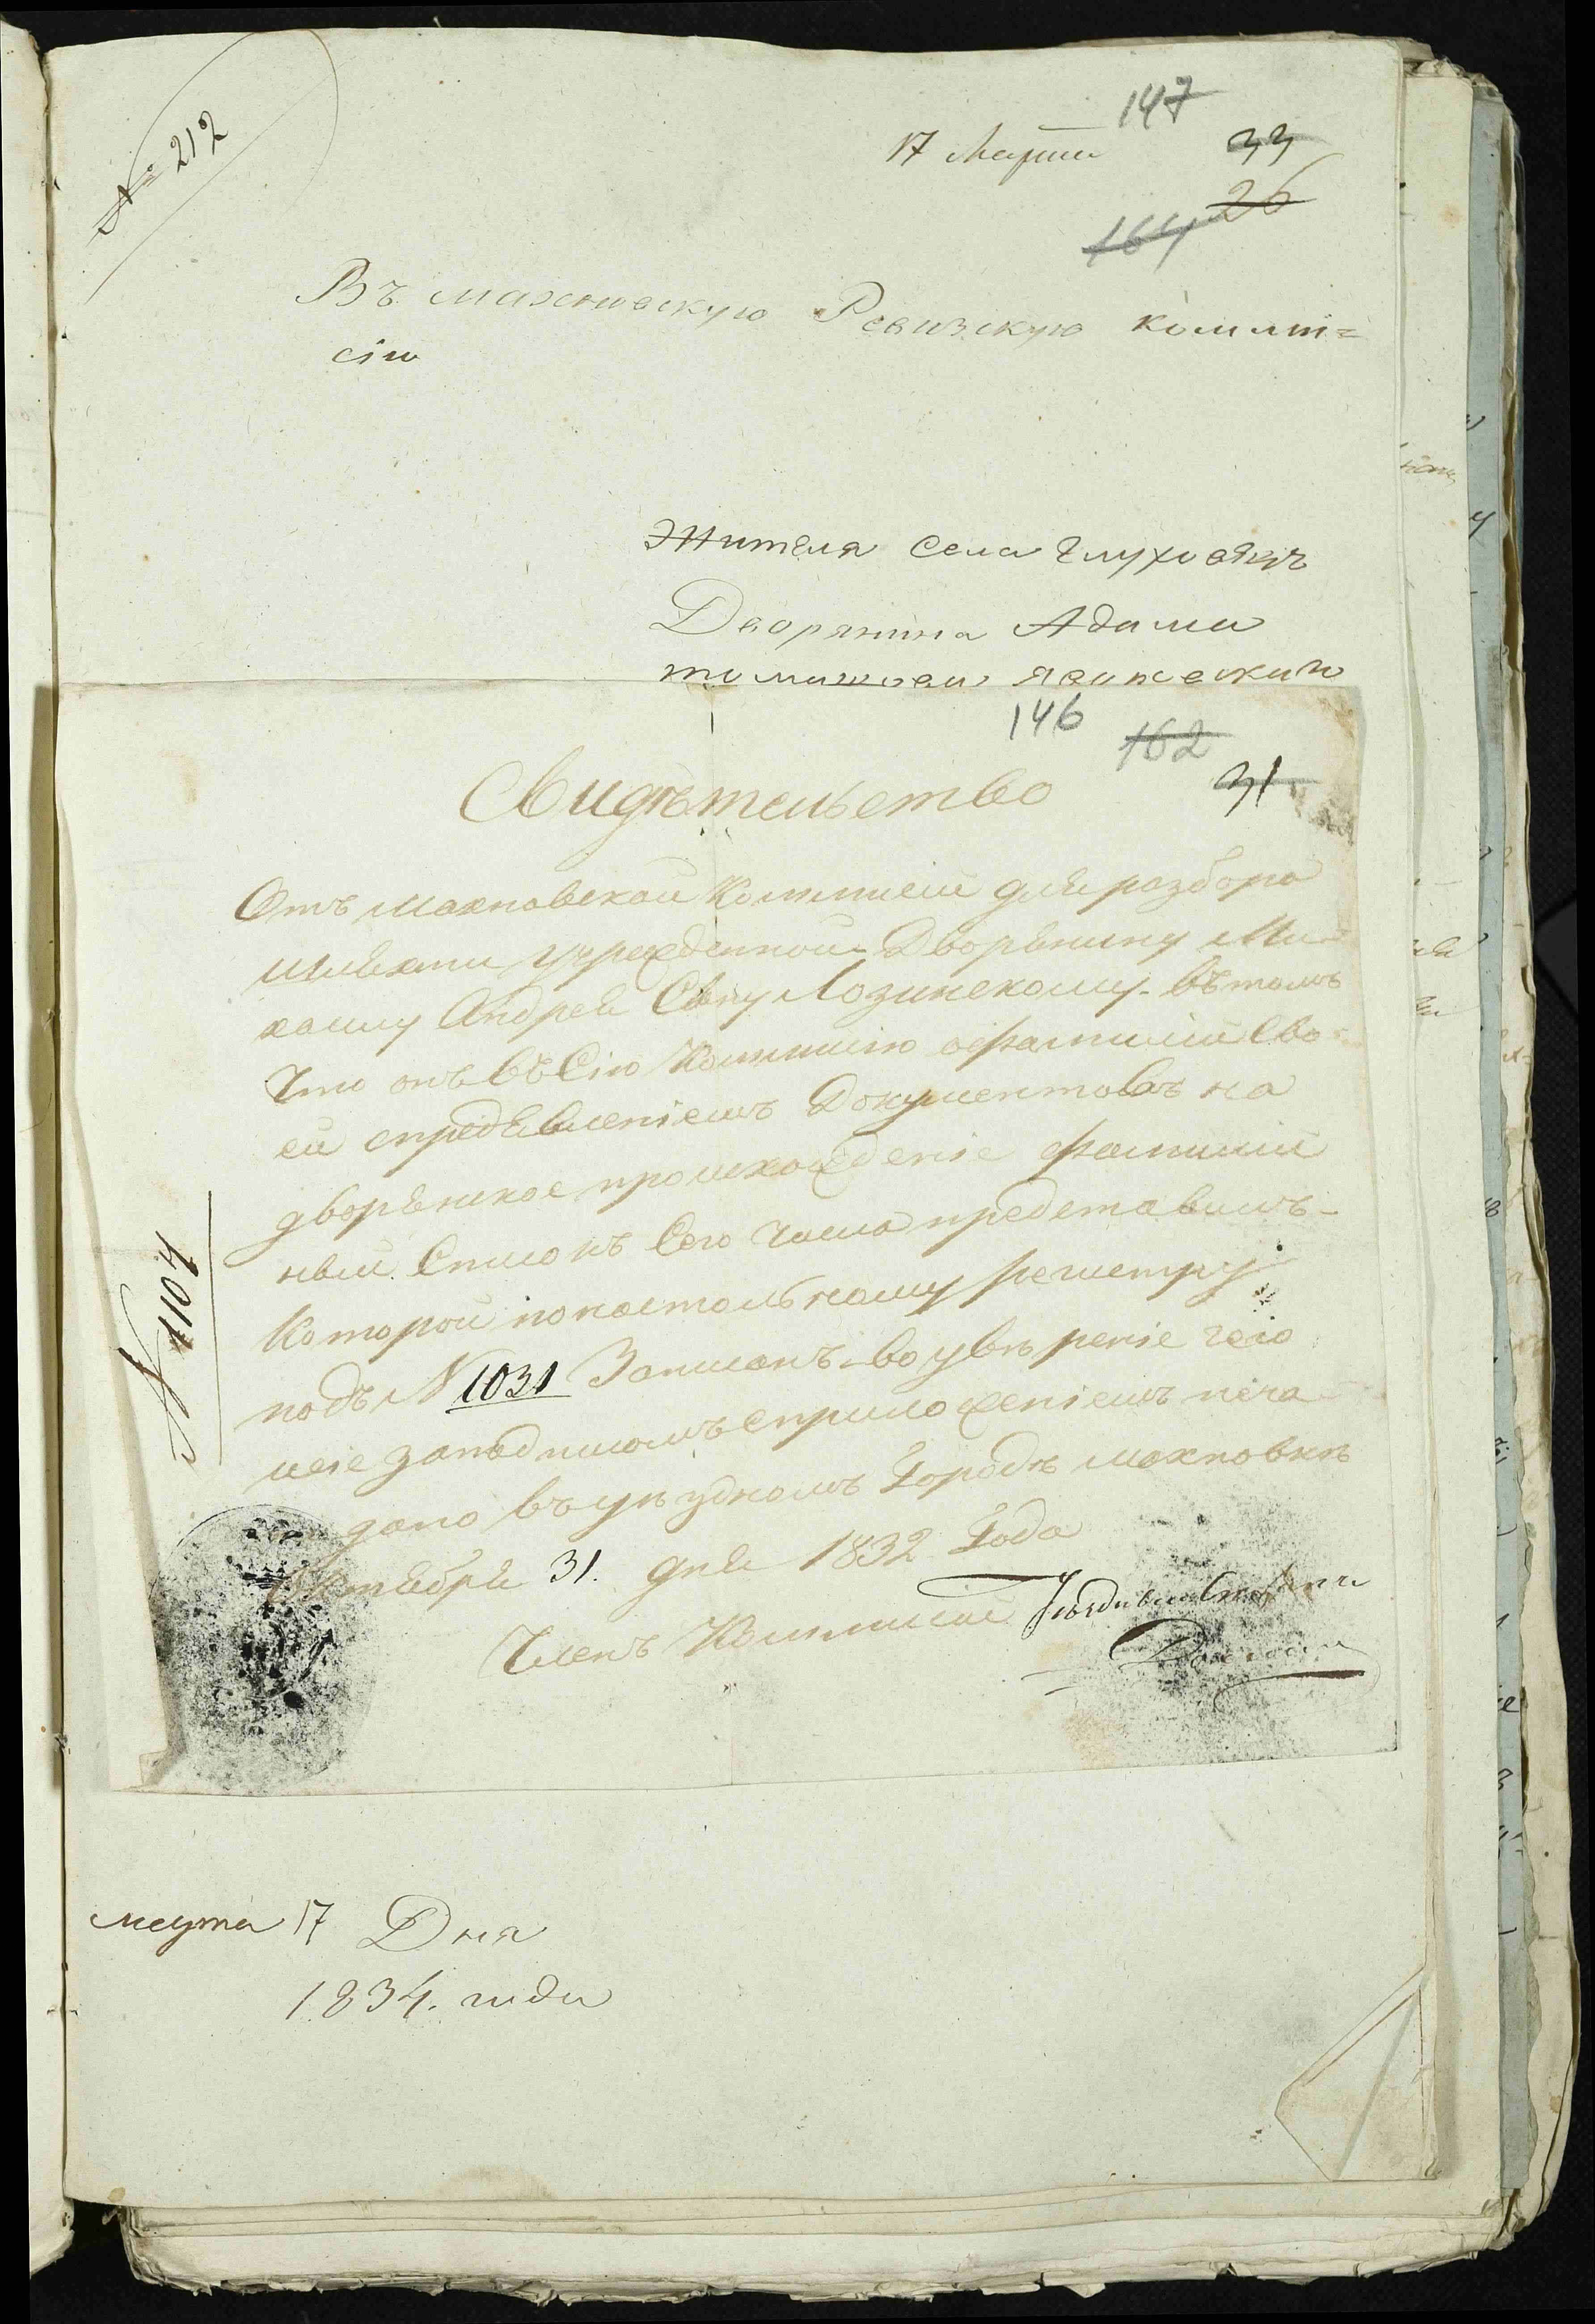 № 212
147
17 Марта
33
26
164
Въ махновскую Ревизскую комми=
сію
Жителя села Глуховецъ
Дворянина Адама
146
162
31
Свидѣтельство
Отъ Махновской Коммисіи для разбора
шляхты учрежденной Дворянину Ми-
хаилу Андрея Сыну Лозинскому въ томъ
Что онъ въ Сію Коммисію о Фамиліи Сво-
ей спредъявленіемъ Документовъ на
дворянское происхожденіе Фамиль
ный Списокъ Сего Числа представилъ-
Которой по настольному регистру
подъ N 1031 Записанъ во увѣреніе чего
сіе заподписомъ сприложеніемъ печа
дано въ уѣздномъ Городѣ Махновкѣ
Октября 31. дня 1832 Года
Членъ Коммисіи
N 1104
марта 17 Дня
1834. года